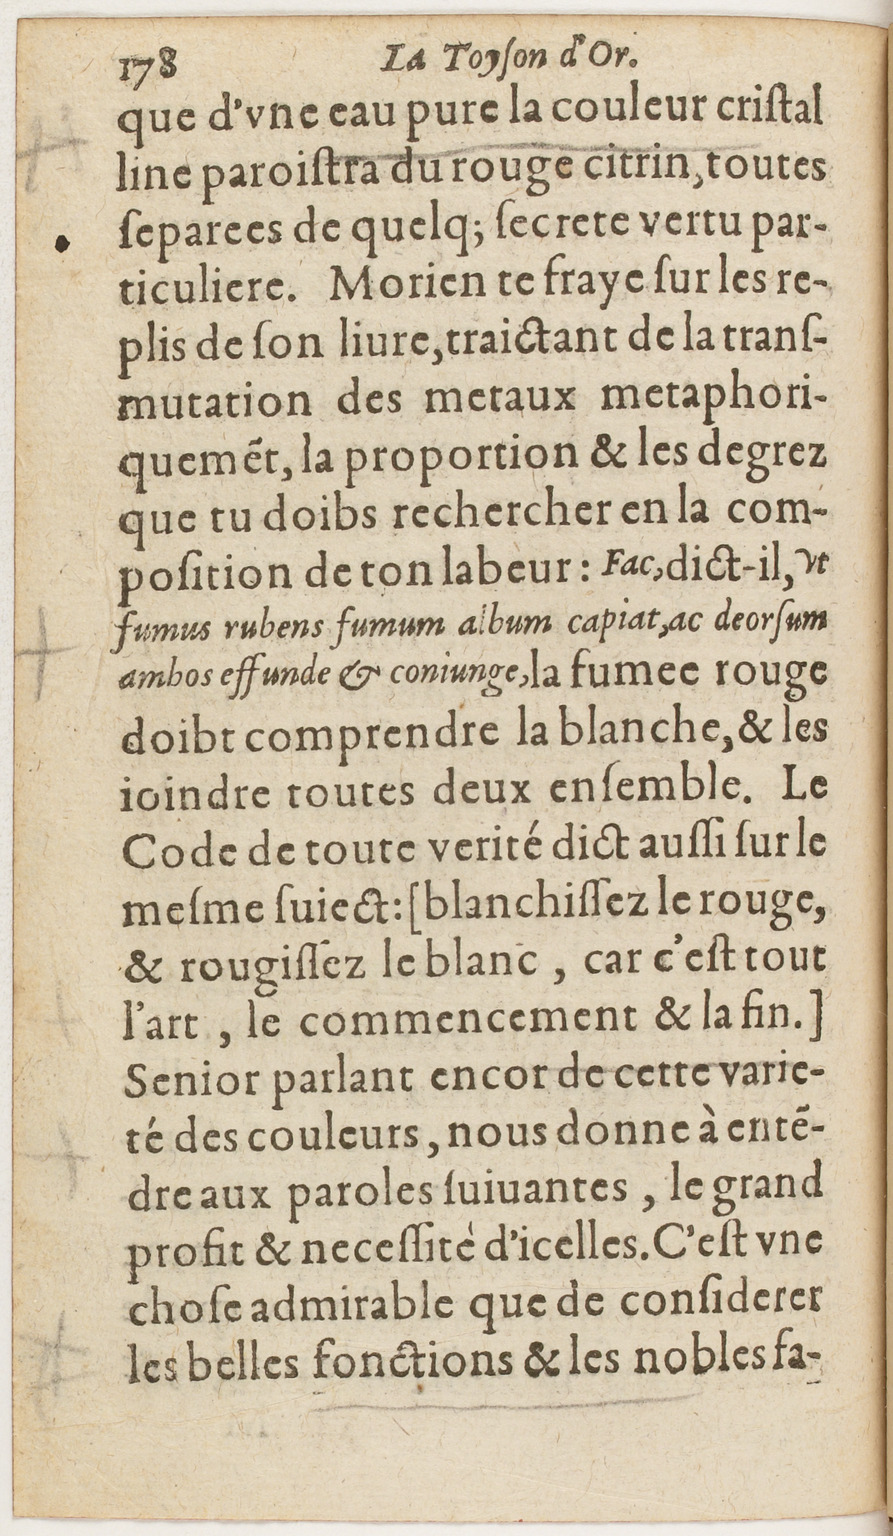 178 La Toyſon d'Or.
que d'vne eau pure la couleur criſtal
line paroiſtra du rouge citrin, toutes
ſeparees de quelq; ſecrete vertu par-
ticuliere. Morien te fraye ſur les re-
plis de ſon liure, traictant de la tranſ-
mutation des metaux metaphori-
quemẽt, la proportion & les degrez
que tu doibs rechercher en la com-
poſition de ton labeur : Fac, dict-il, vt
fumus rubens fumum album capiat, ac deorſum
ambos effunde & coniunge, la fumee rouge
doibt comprendre la blanche, & les
ioindre toutes deux enſemble. Le
Code de toute verité dict auſſi ſur le
meſme ſuiect: [blanchiſſez le rouge,
& rougiſſez le blanc , car c'eſt tout
l'art , le commencement & la fin.]
Senior parlant encor de cette varie-
té des couleurs, nous donne à entẽ-
dre aux paroles ſuiuantes , le grand
profit & neceſſité d'icelles. C'eſt vne
choſe admirable que de conſiderer
les belles fonctions & les nobles fa-